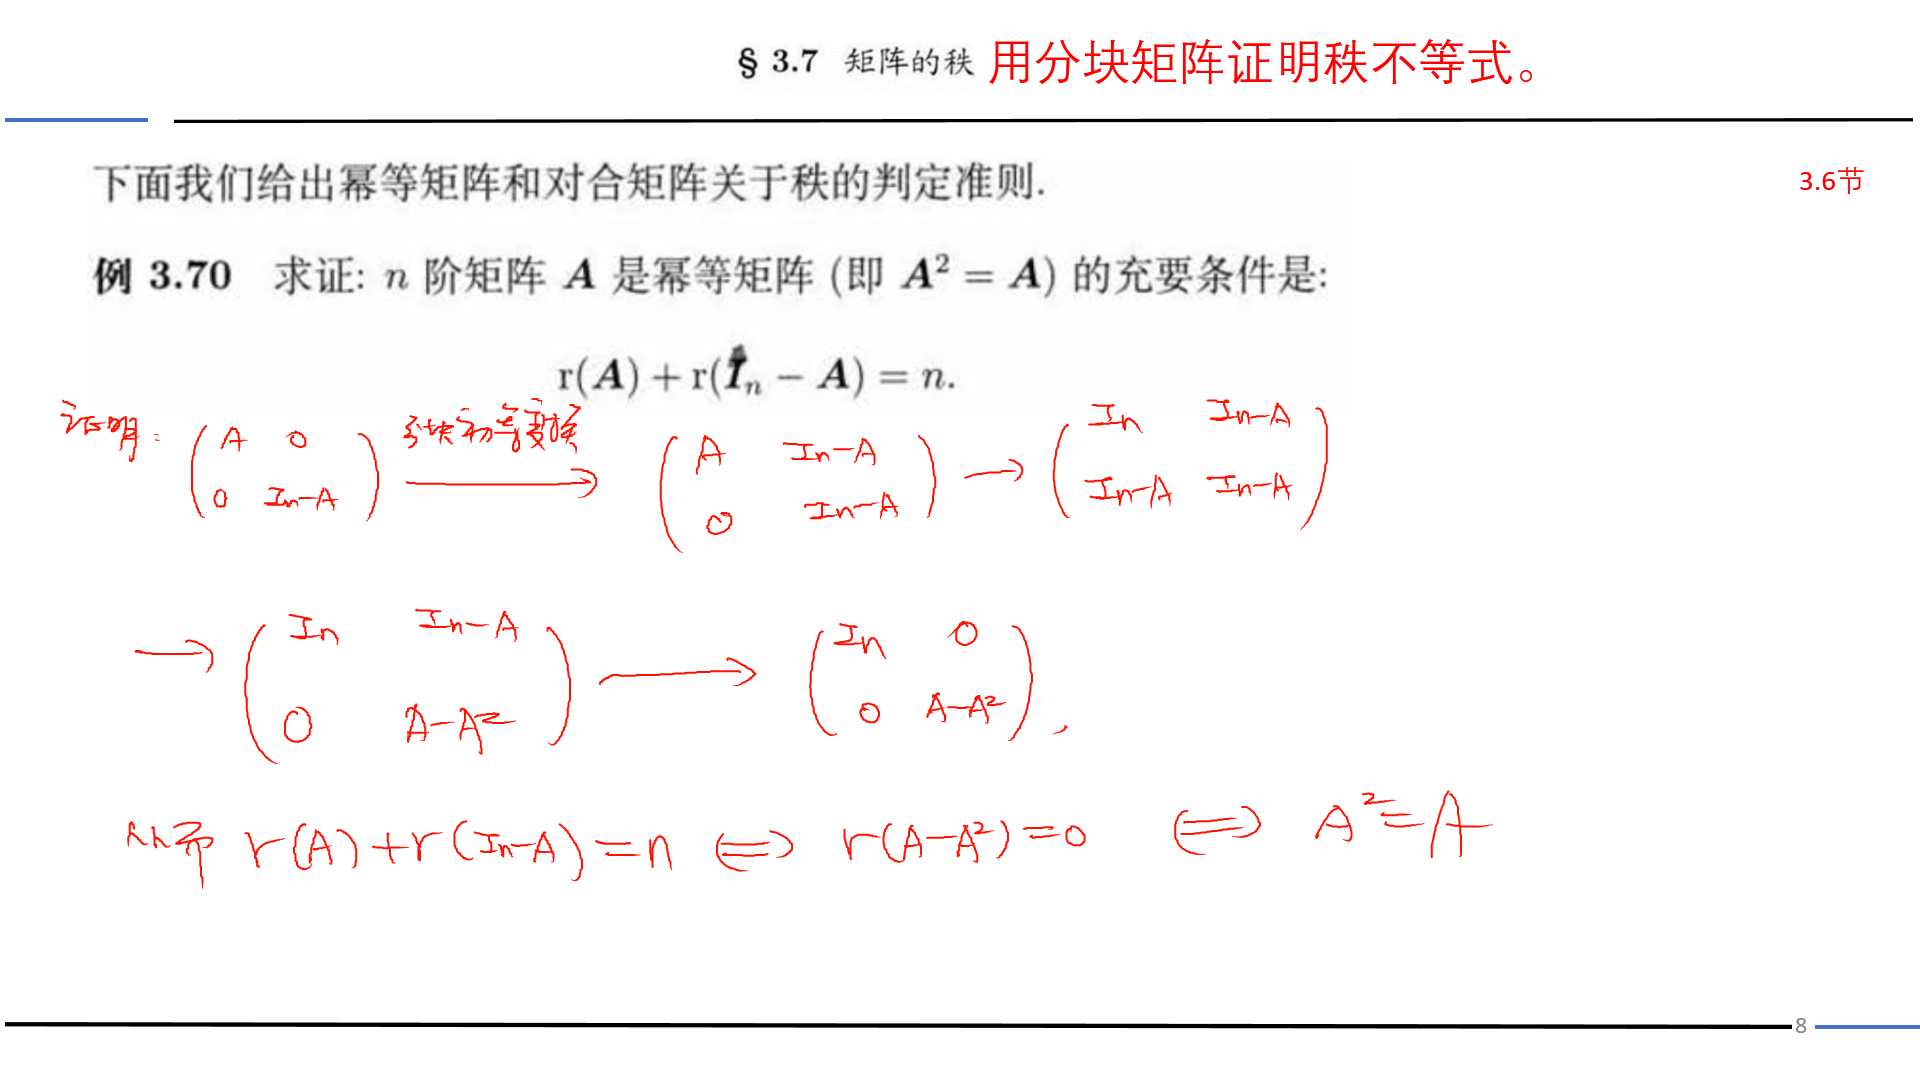 § 3.7 矩阵的秩 用分块矩阵证明秩不等式。
3.6节
下面我们给出幂等矩阵和对合矩阵关于秩的判定准则.
例 3.70 求证: n 阶矩阵 A 是幂等矩阵 (即 A² = A) 的充要条件是:
r(A) + r(Iₙ − A) = n.
证明: (A 0 ; 0 In-A) 分块初等变换 → (A In-A ; 0 In-A) → (In In-A ; In-A In-A)
→ (In In-A ; 0 A-A²) → (In 0 ; 0 A-A²),
从而 r(A)+r(In-A)=n ⟺ r(A-A²)=0 ⟺ A²=A
8